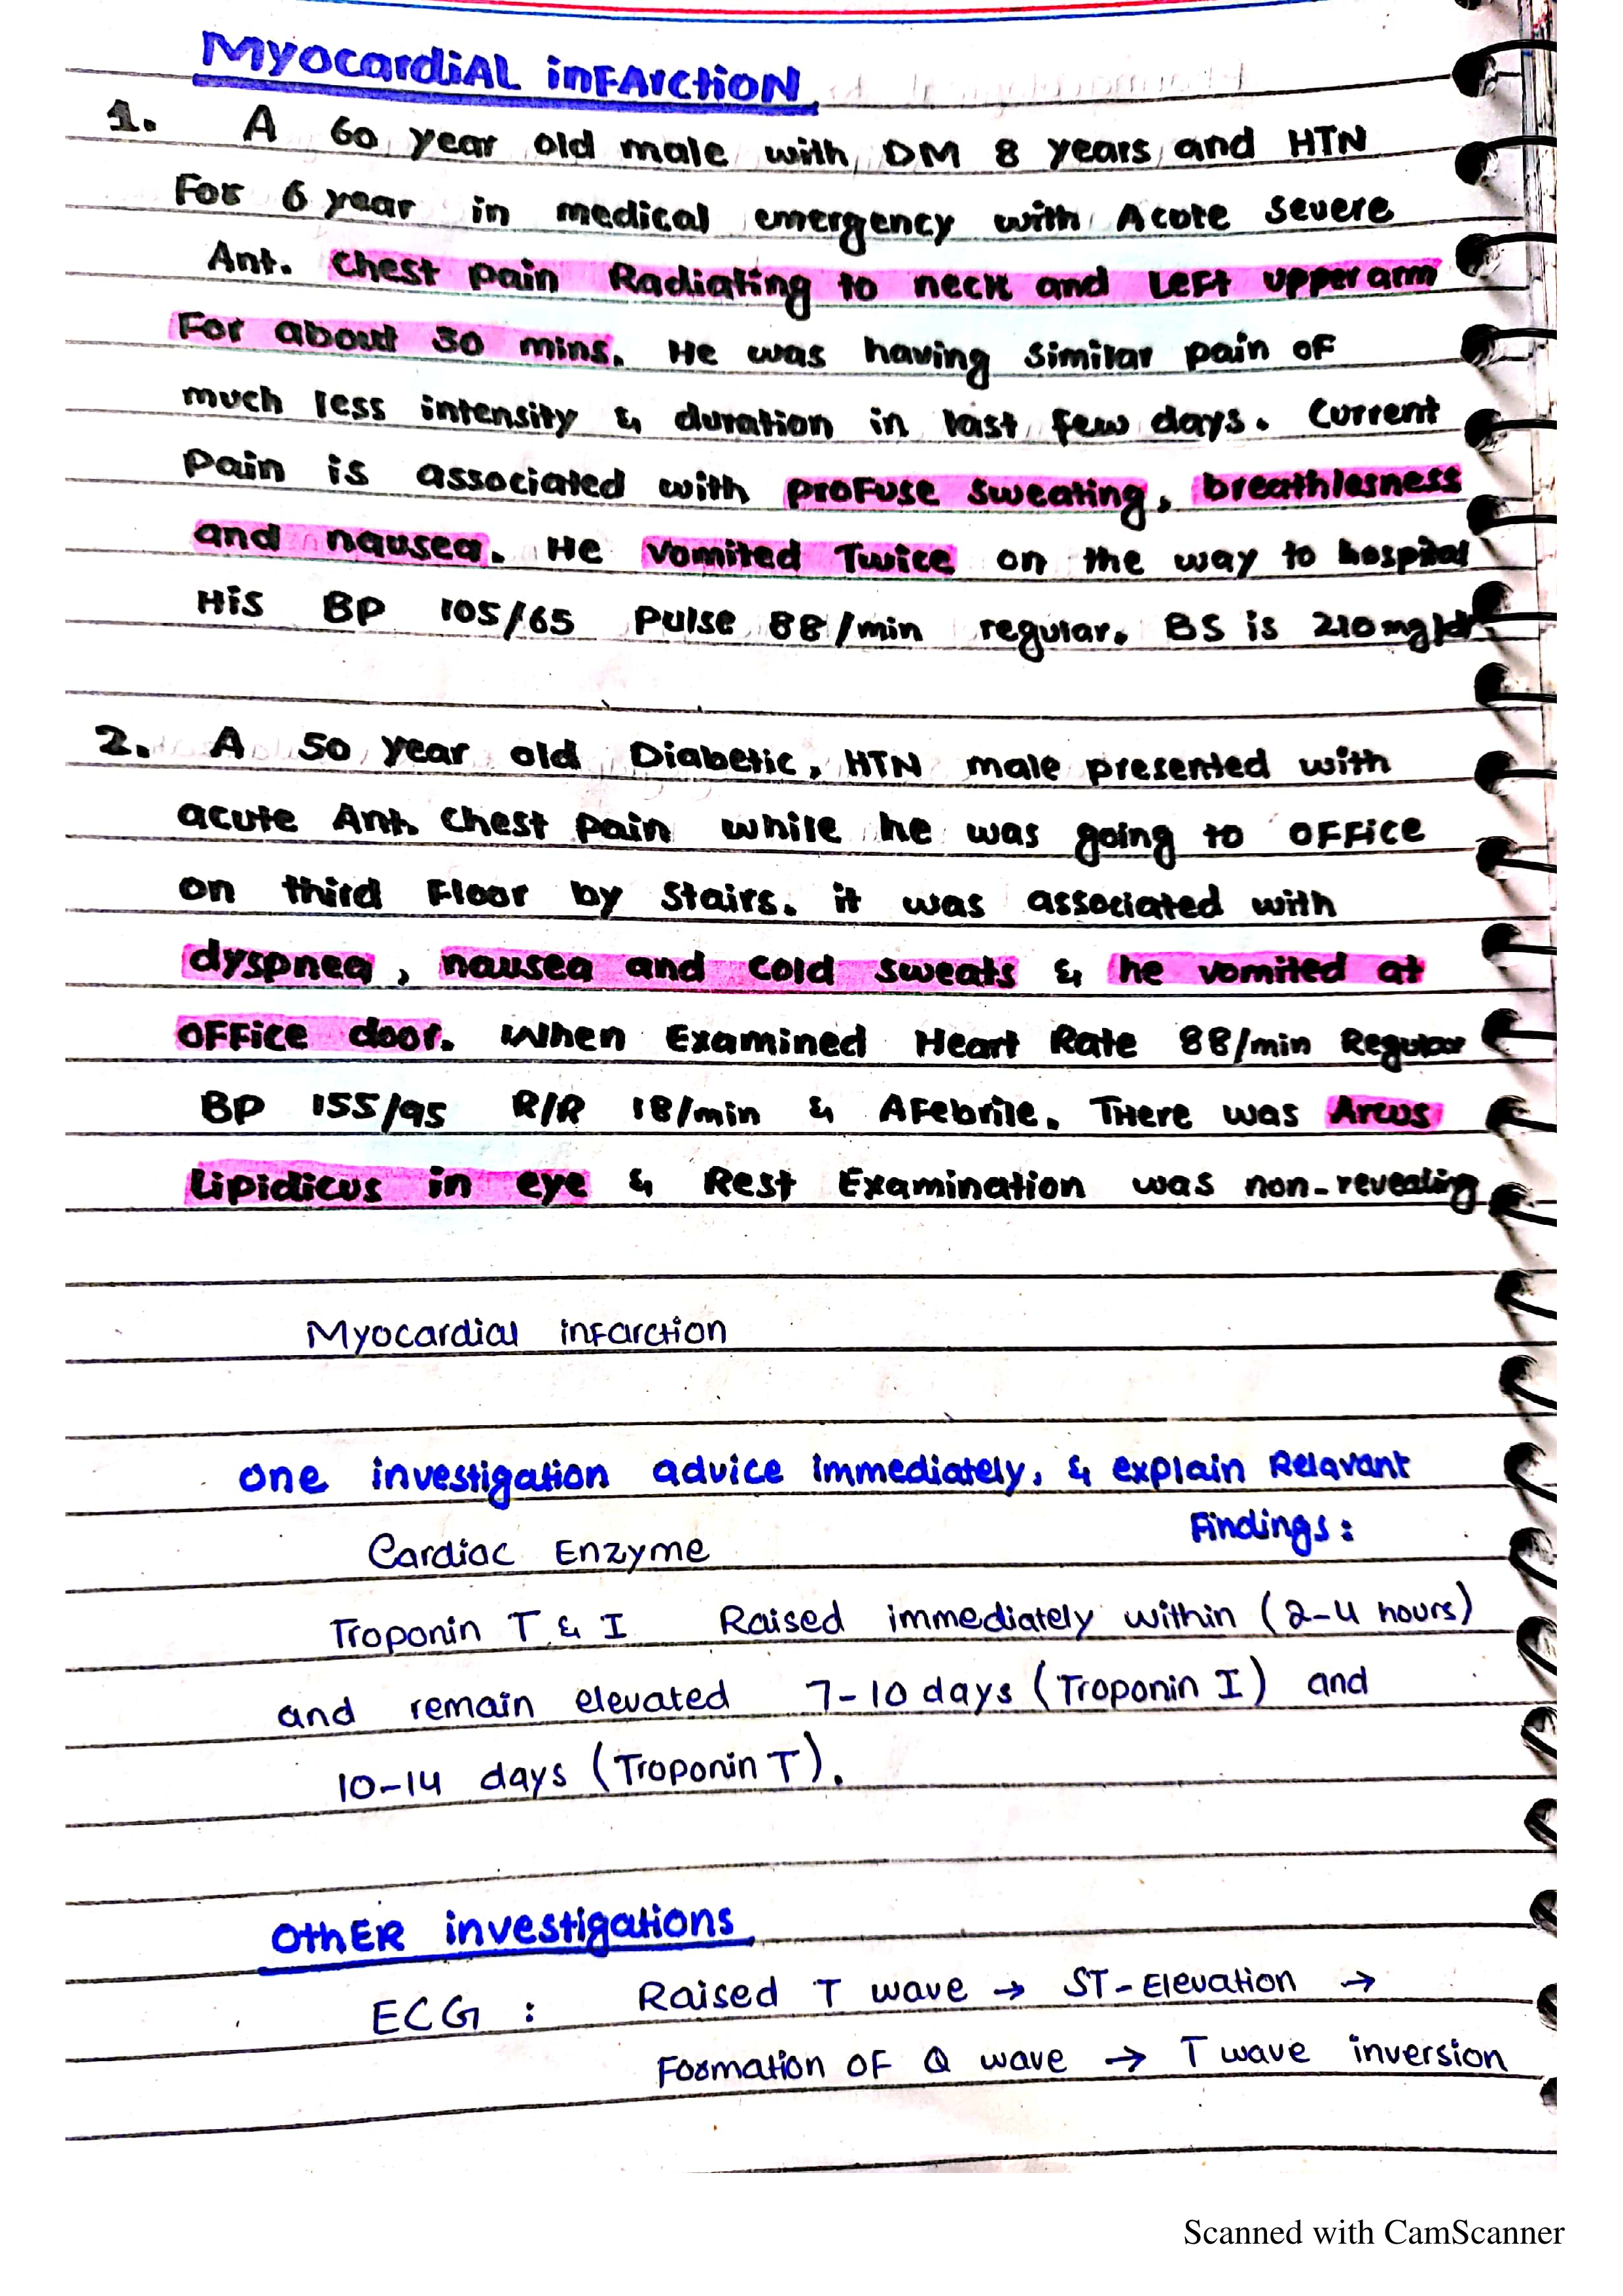 MyocardiAL inFArctioN
1. A 60 year old male with DM 8 years and HTN
For 6 year in medical emergency with Acote severe
Ant. chest pain Radiating to neck and Left upper arm
For about 30 mins. He was having similar pain of
much less intensity & duration in last few days. Current
Pain is associated with profuse sweating, breathlesness
and nausea. He vomited Twice on the way to hospital
His BP 105/65 Pulse 88/min regular. BS is 210 mg/dl
2. A 50 year old Diabetic, HTN male presented with
acute Ant. chest pain while he was going to office
on third Floor by stairs. it was associated with
dyspnea, nausea and cold sweats & he vomited at
office door. When Examined Heart Rate 88/min Regular
BP 155/95 R/R 18/min & Afebrile. There was Arcus
Lipidicus in eye & Rest Examination was non-revealing
Myocardial infarction
one investigation advice immediately, & explain Relavant
Findings:
Cardiac Enzyme
Troponin T & I Raised immediately within (2-4 hours)
and remain elevated 7-10 days (Troponin I) and
10-14 days (Troponin T).
OthER investigations
ECG : Raised T wave → ST-Elevation →
Formation of Q wave → T wave inversion
Scanned with CamScanner